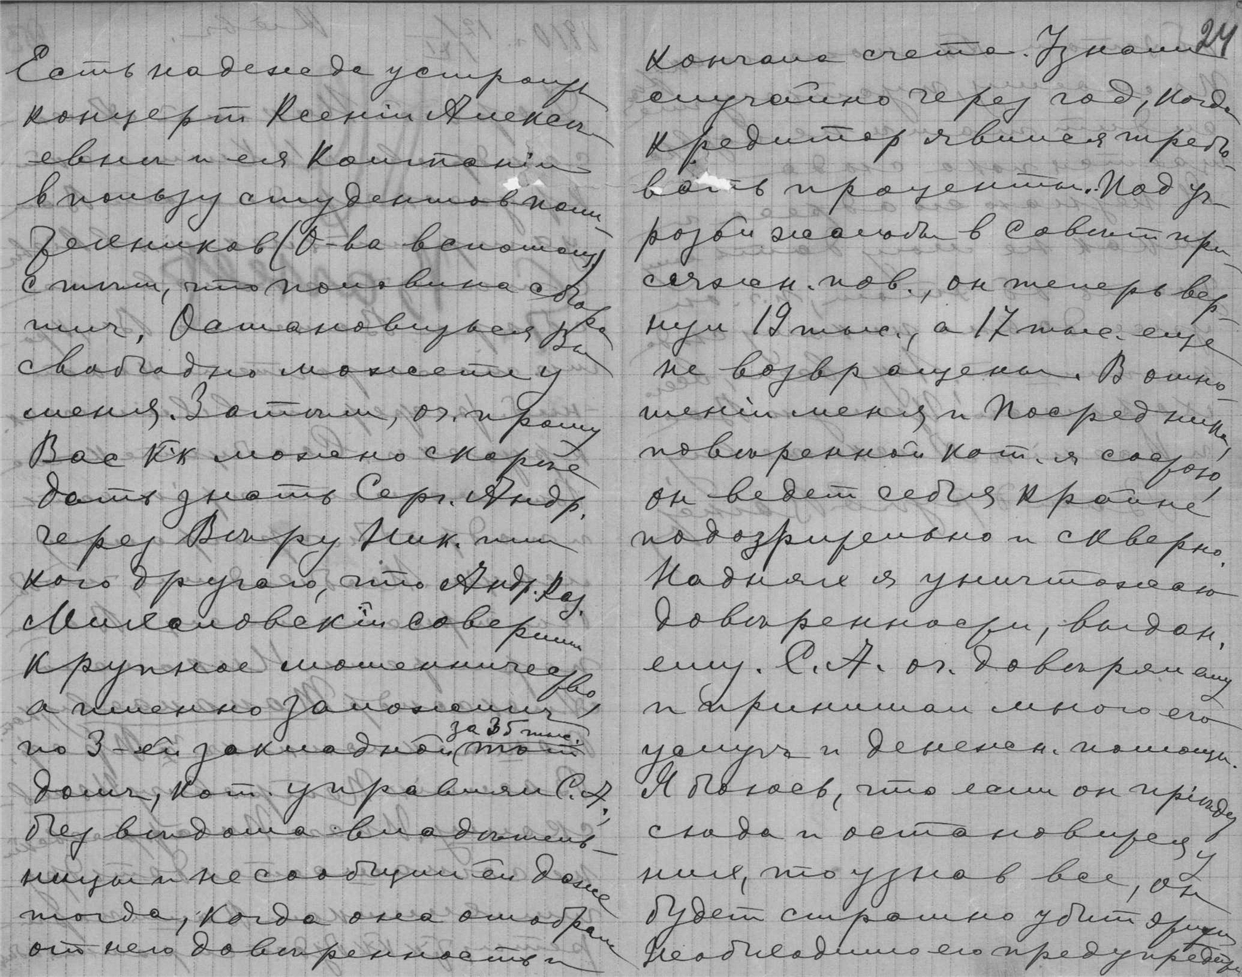 Есть надежда устроить
концерт Ксеніи Алексѣ-
евны и ея Компаніи
в пользу студентов поли-
техников (О-ва вспомощ.)
с тѣм, что половина сбора
им. Остановиться Вы
свободно можете у
меня. Затѣм, оч. прошу
Вас к'к можно скорѣе
дать знать Серг. Андр.
через Вѣру Ник. или
кого другого, что Андр. Каз.
Михаловскій совершил
крупное мошенничество,
а именно заложил
по 3-ей закладной за 35 тыс. тот
дом, кот. управлял С. А.,
без вѣдома владѣтель-
ницы и не сообщил ей даже
тогда, когда она отобрала
от него довѣренность и
24
кончала счета. Узнали
случайно через год, когда
кредитор явился требо-
вать проценты. Под уг-
розой жалобы в Совѣт при-
сяжн. пов., он теперь вер-
нул 19 тыс., а 17 тыс. еще
не возвращены. В отно-
шеніи меня и Посредника,
повѣренной кот. я состою,
он ведет себя крайне
подозрительно и скверно.
На днях я уничтожаю
довѣренности, выдан.
ему. С. А. оч. довѣрял ему
и принимал много его
услуг и денежн. помощи.
Я боюсь, что если он пріѣдет
сюда и остановится у
них, то узнав все, он
будет страшно убит
Необходимо его предупредить